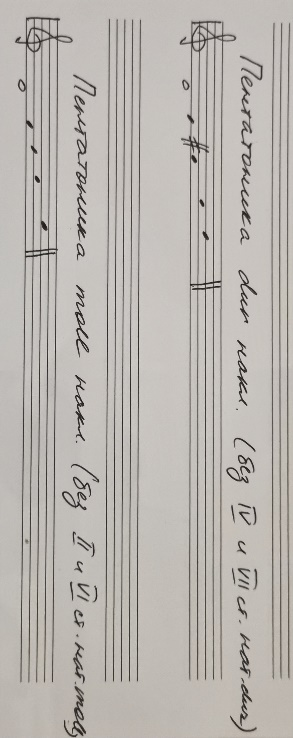 Пентатоника dur накл. (без IV и VII ст. нат. dur)
Пентатоника moll накл. (без II и VI ст. нат. moll)